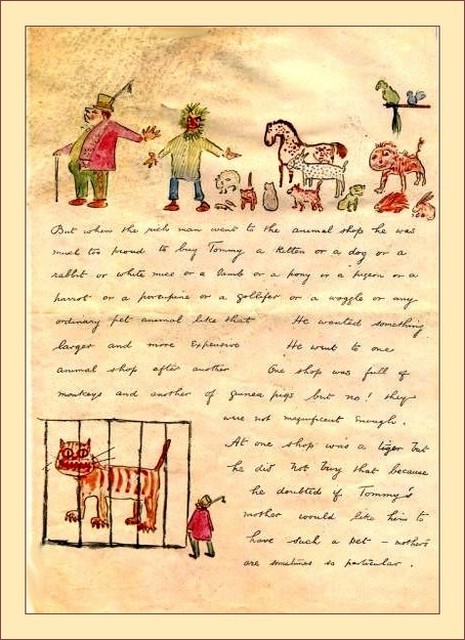 But when the rich man went to the animal shop he was
much too proud to buy Tommy a kitten or a dog or a
rabbit or white mice or a lamb or a pony or a pigeon or a
parrot or a porcupine or a gollifer or a woggle or any
ordinary pet animal like that He wanted something
larger and more expensive He went to one
animal shop after another One shop was full of
monkeys and another of guinea pigs but no! they
were not magnificent enough.
At one shop was a tiger but
he did not buy that because
he doubted if Tommy's
mother would like him to
have such a pet - mothers
are sometimes so particular.